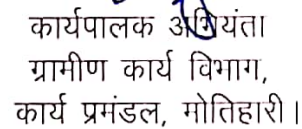 कार्यपालक अभियंता
ग्रामीण कार्य विभाग,
कार्य प्रमंडल, मोतिहारी।